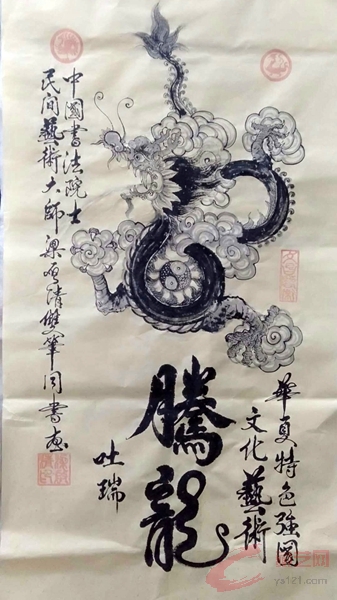 華夏特色強國
文化藝術
騰龍
吐瑞
中國書法院士
民間藝術大師梁清雙筆同書画
ys121.com